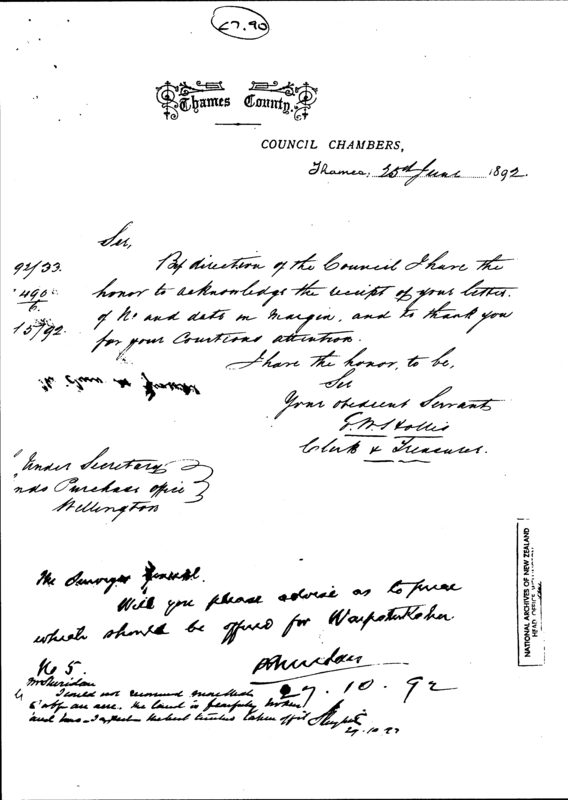 £7.90
Thames County.
COUNCIL CHAMBERS,
Thames, 25th June 1892.
Sir,
92/33.
490
6.
15/92.
By direction of the Council I have the
honor to acknowledge the receipt of your letter
of No and date in margin, and to thank you
for your Courteous attention.
I have the honor, to be,
Sir
Your obedient Servant
Hollis
Clerk & Treasurer.
Under Secretary
nds Purchase Office
Wellington
The Surveyor General.
Will you please advise as to price
which should be offered for
P Sheridan
27.10.92
No 5.
Mr Sheridan
I could not recommend more than
6/- an acre. The land is fearfully broken
and the best timber taken off it
27.10.92
NATIONAL ARCHIVES OF NEW ZEALAND
HEAD OFFICE